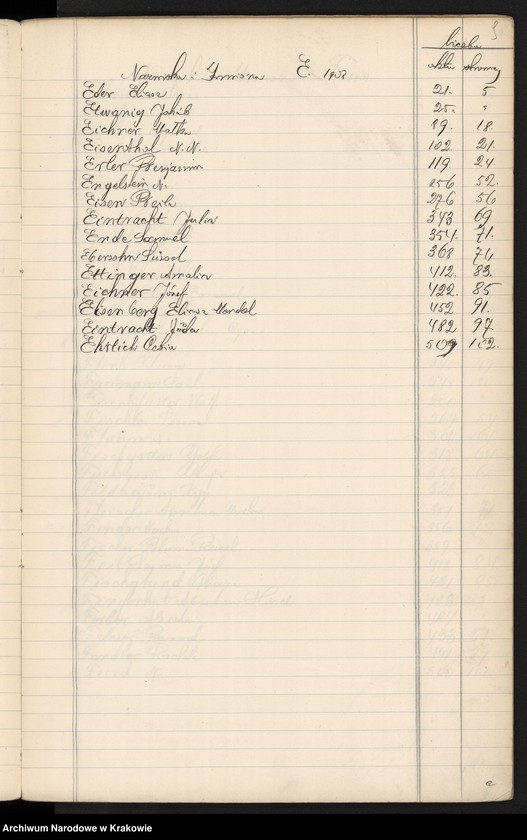 liczba
Nazwisko i Imiona E. 1902 aktu strony
Eder Eliasz 21. 5
Elwanig Jakób 25. "
Eichner Matka 89. 18.
Eisenthal N. N. 102. 21.
Erler Benjamin 119 24
Engelstein N. 256 52.
Eisen Beila 276 56
Eintracht Julia 343 69
Ende Samuel 354. 71.
Ebersohn Süssel 368 74
Ettinger Amalia 412. 83.
Eichner Józef 422. 85
Eisenberg Eliasz Mendel 452 91.
Eintracht Juda 482. 97
Ehrlich Cesia 509 102.
Archiwum Narodowe w Krakowie